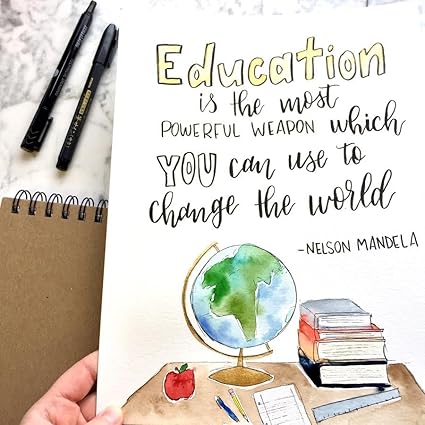 Education
is the most
POWERFUL WEAPON which
YOU can use to
change the world
-NELSON MANDELA